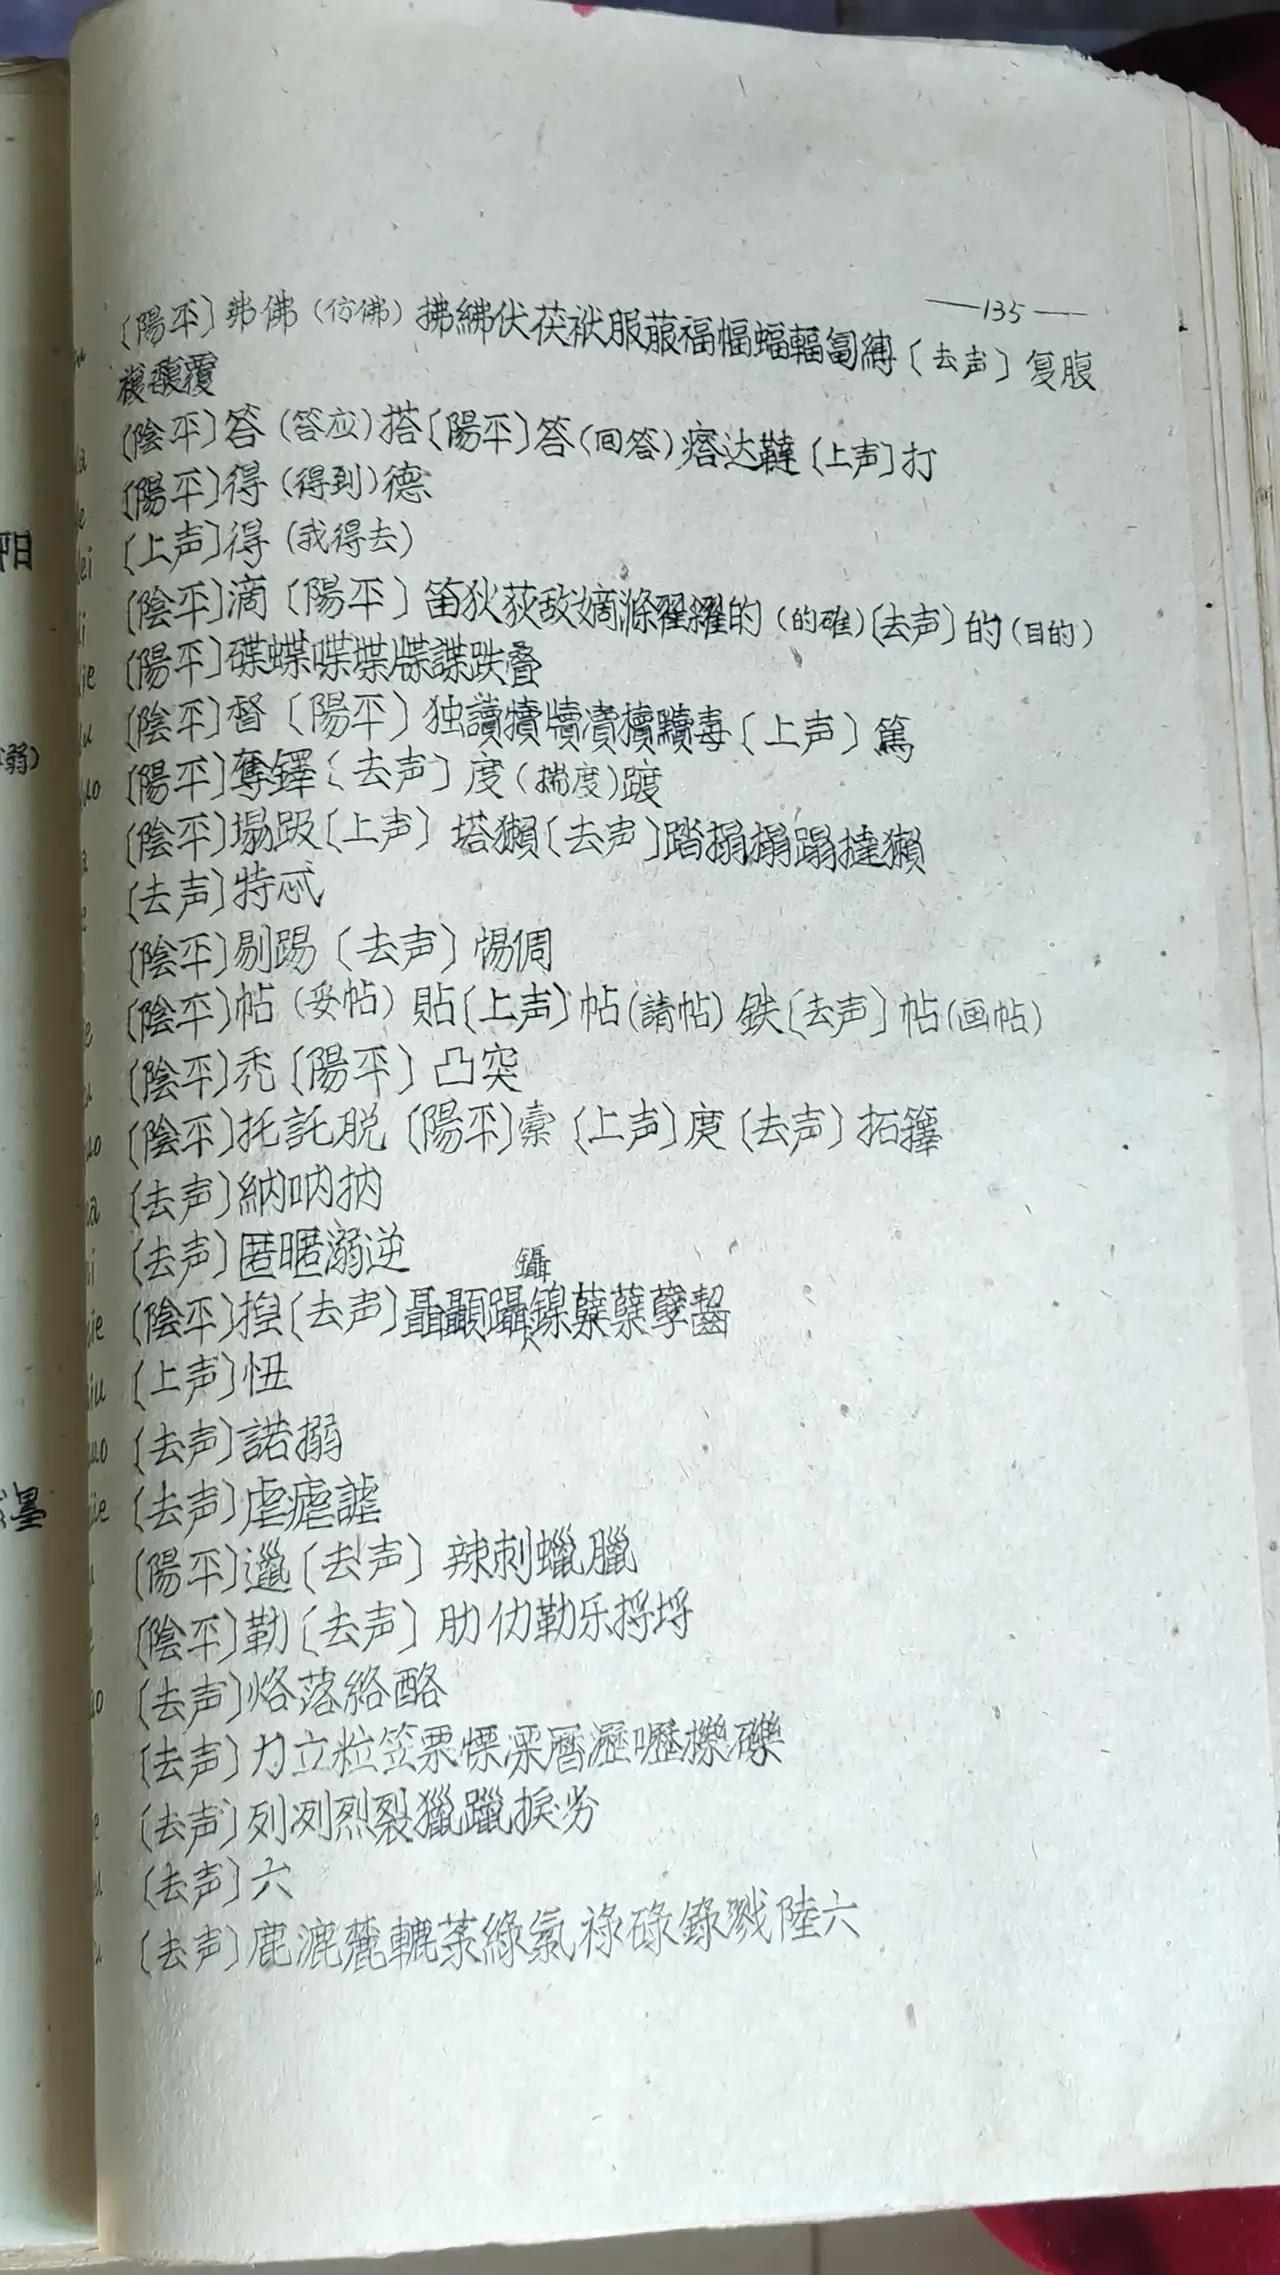 —135—
〔陽平〕弗佛（仿佛）拂紼伏茯袱服菔福幅蝠輻匐縛〔去声〕复腹
複馥覆
〔陰平〕答（答应）搭〔陽平〕答（回答）瘩达韃〔上声〕打
〔陽平〕得（得到）德
〔上声〕得（我得去）
〔陰平〕滴〔陽平〕笛狄荻敌嫡滌翟糴的（的確）〔去声〕的（目的）
〔陽平〕碟蝶喋堞牒諜跌叠
〔陰平〕督〔陽平〕独讀犢牘瀆櫝黷毒〔上声〕篤
〔陽平〕奪鐸〔去声〕度（揣度）踱
〔陰平〕塌趿〔上声〕塔獺〔去声〕踏搨榻蹋撻獺
〔去声〕特忒
〔陰平〕剔踢〔去声〕惕倜
〔陰平〕帖（妥帖）貼〔上声〕帖（請帖）鉄〔去声〕帖（画帖）
〔陰平〕秃〔陽平〕凸突
〔陰平〕托託脱〔陽平〕橐〔上声〕庹〔去声〕拓籜
〔去声〕納呐抐
〔去声〕匿暱溺逆
鑷
〔陰平〕捏〔去声〕聶顳躡鎳蘖蘗孽齧
〔上声〕忸
〔去声〕諾搦
〔去声〕虐瘧謔
〔陽平〕邋〔去声〕辣刺蠟臘
〔陰平〕勒〔去声〕肋仂勒乐捋埒
〔去声〕烙落絡酪
〔去声〕力立粒笠栗慄溧曆瀝嚦櫟礫
〔去声〕列冽烈裂獵躐捩劣
〔去声〕六
〔去声〕鹿漉麓轆菉綠氯祿碌錄戮陸六
阳
弱）
墨